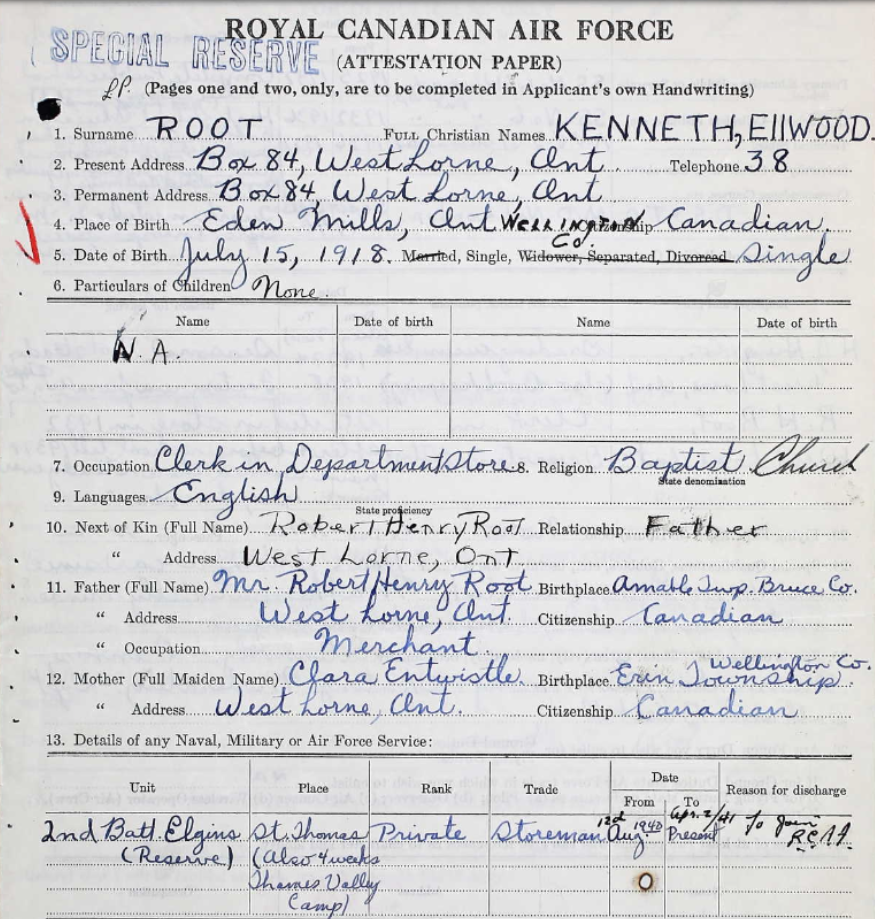 ROYAL CANADIAN AIR FORCE
SPECIAL RESERVE
(ATTESTATION PAPER)
(Pages one and two, only, are to be completed in Applicant's own Handwriting)
1. Surname ROOT FULL Christian Names KENNETH, EllWOOD.
2. Present Address Box 84, West Lorne, Ont. Telephone 38
3. Permanent Address Box 84, West Lorne, Ont
4. Place of Birth Eden Mills, Ont Wellington Co. Citizenship Canadian.
5. Date of Birth July 15, 1918. Married, Single, Widower, Separated, Divorced Single
6. Particulars of Children None.
Name Date of birth Name Date of birth
N. A.
7. Occupation Clerk in Department Store 8. Religion Baptist Church
State denomination
9. Languages English
State proficiency
10. Next of Kin (Full Name) Robert Henry Root Relationship Father
" Address West Lorne, Ont
11. Father (Full Name) Mr. Robert Henry Root Birthplace Amable Twp. Bruce Co.
" Address West Lorne, Ont. Citizenship Canadian
" Occupation Merchant.
12. Mother (Full Maiden Name) Clara Entwistle Birthplace Erin Township Wellington Co.
" Address West Lorne, Ont. Citizenship Canadian
13. Details of any Naval, Military or Air Force Service:
Unit Place Rank Trade Date From To Reason for discharge
2nd Batt. Elgins St. Thomas Private Storeman 12th Aug. 1940 Apr. 2/41 Present To join R.C.A.F.
(Reserve) (Also 4 weeks
Thames Valley
Camp)